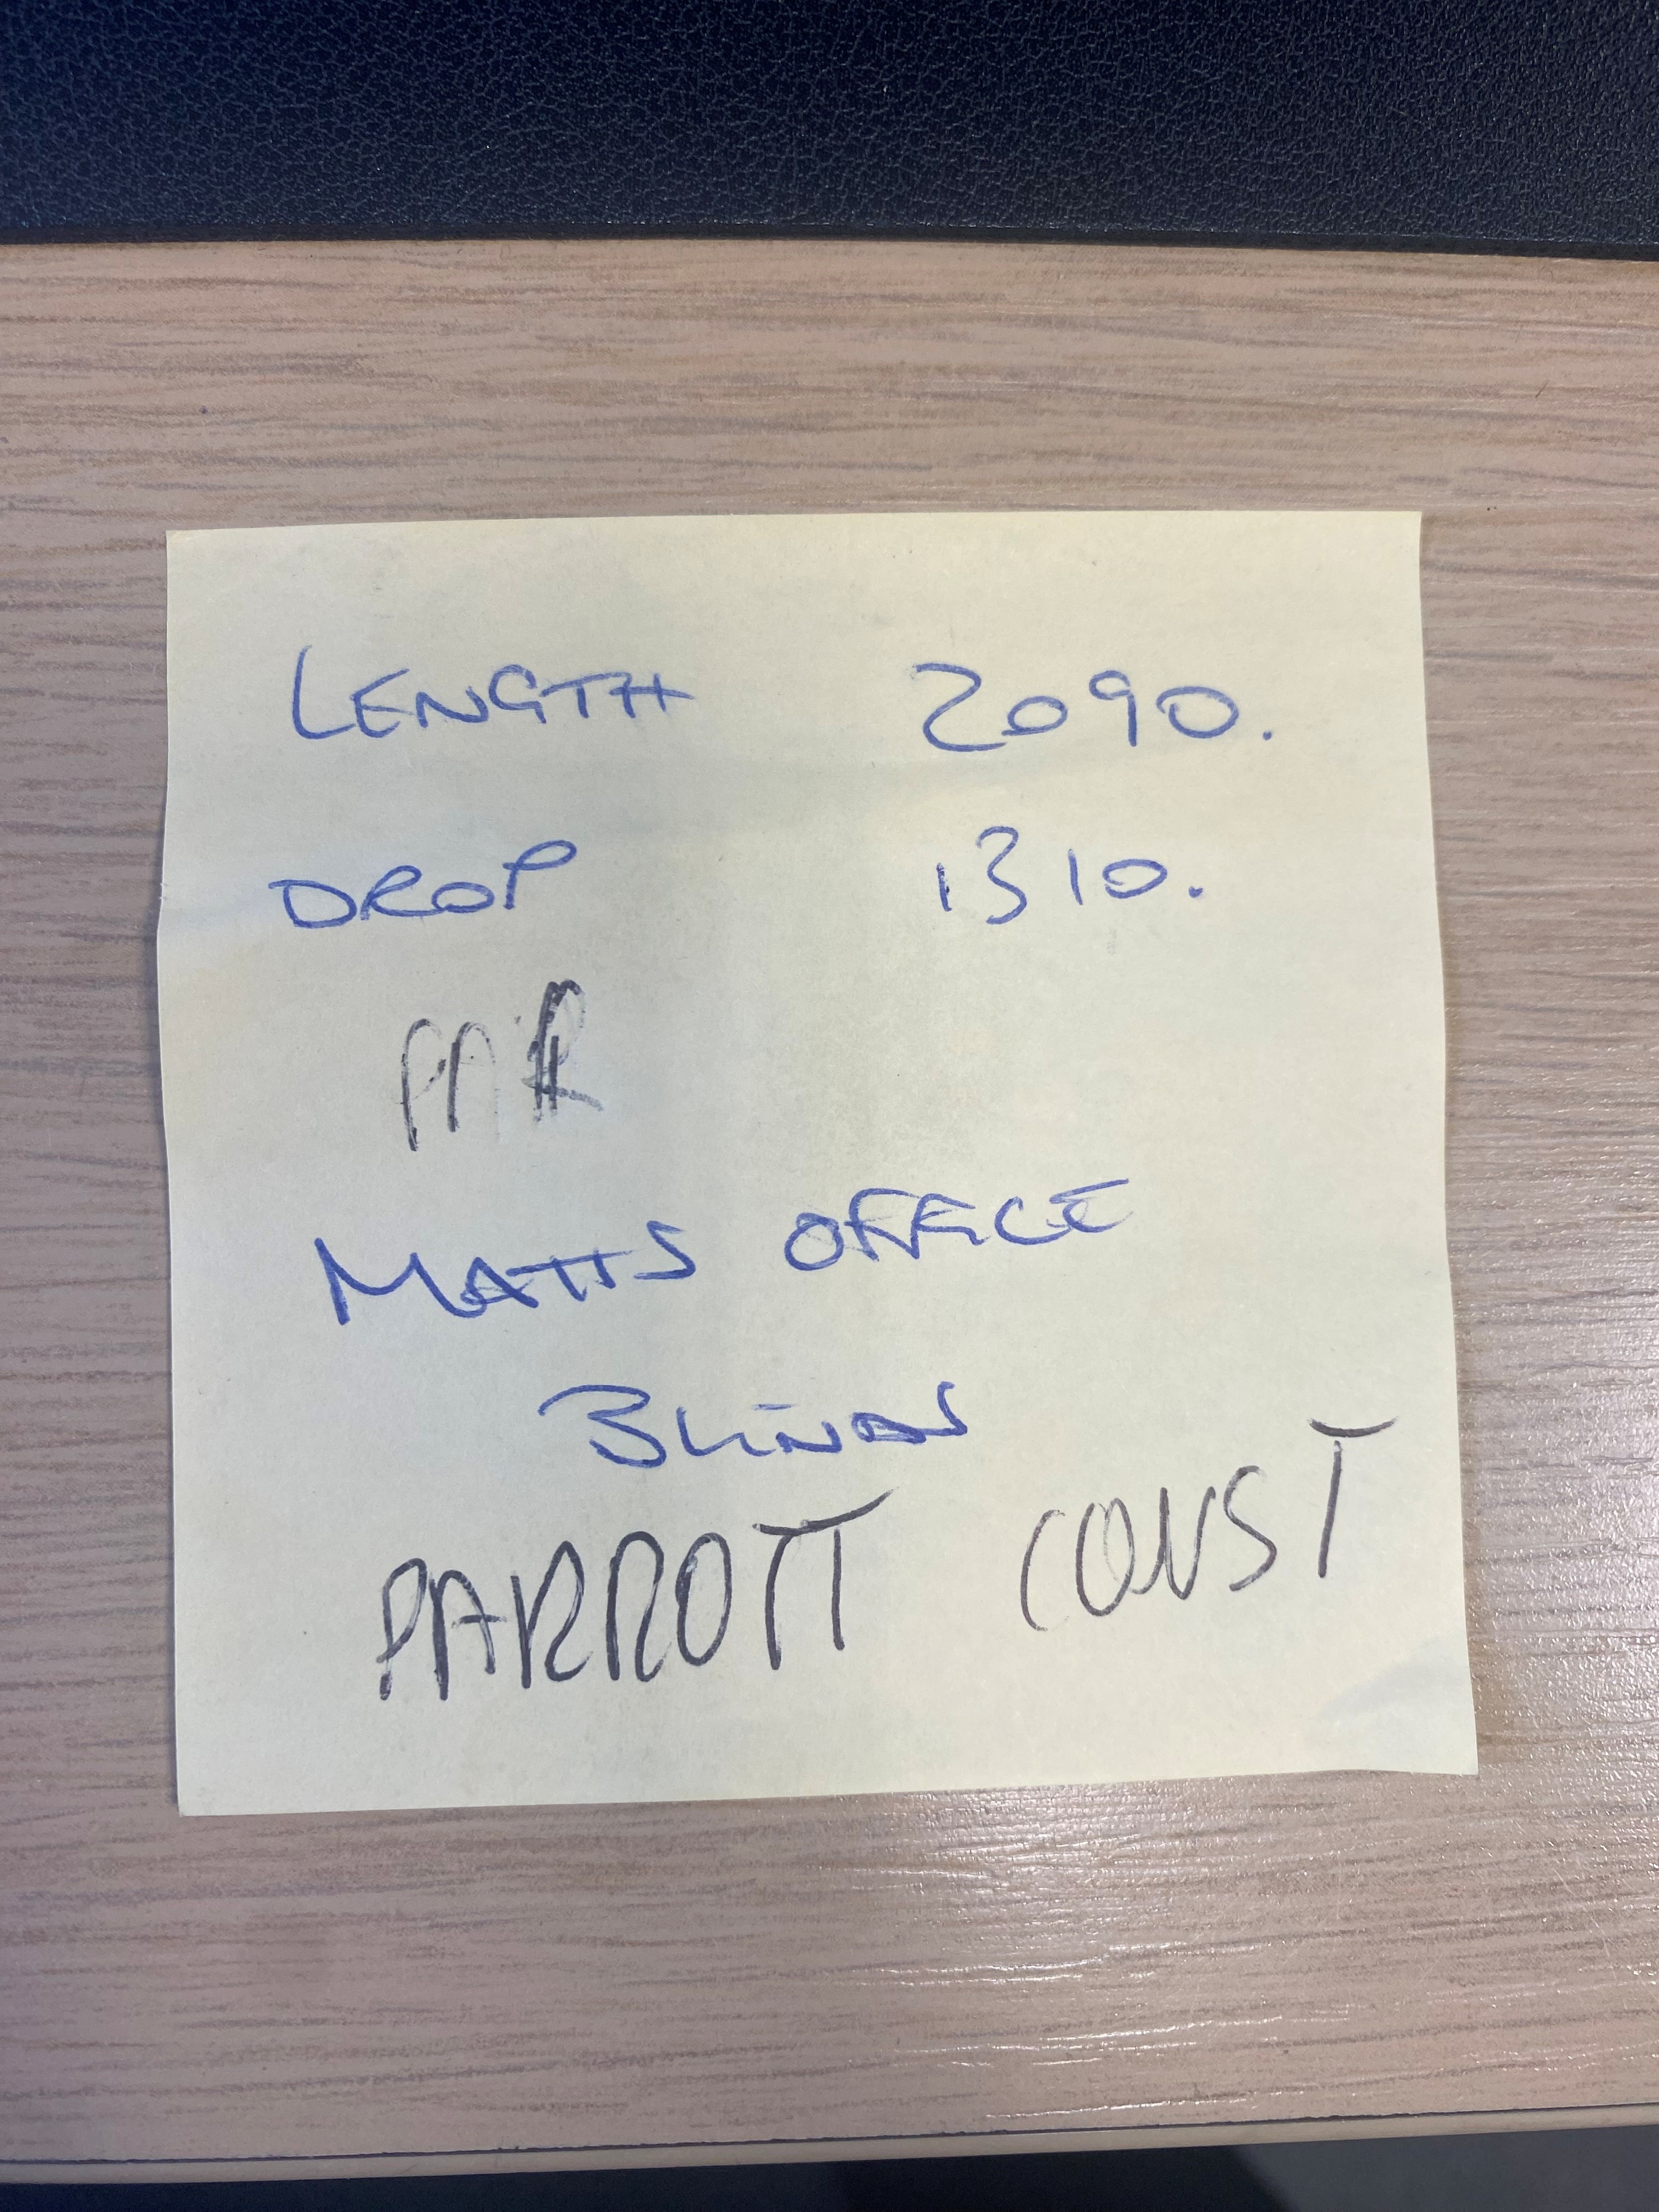 LENGTH 2090.
DROP 1310.
PAIR
MATTS OFFICE
BLINDS
PARROTT CONST